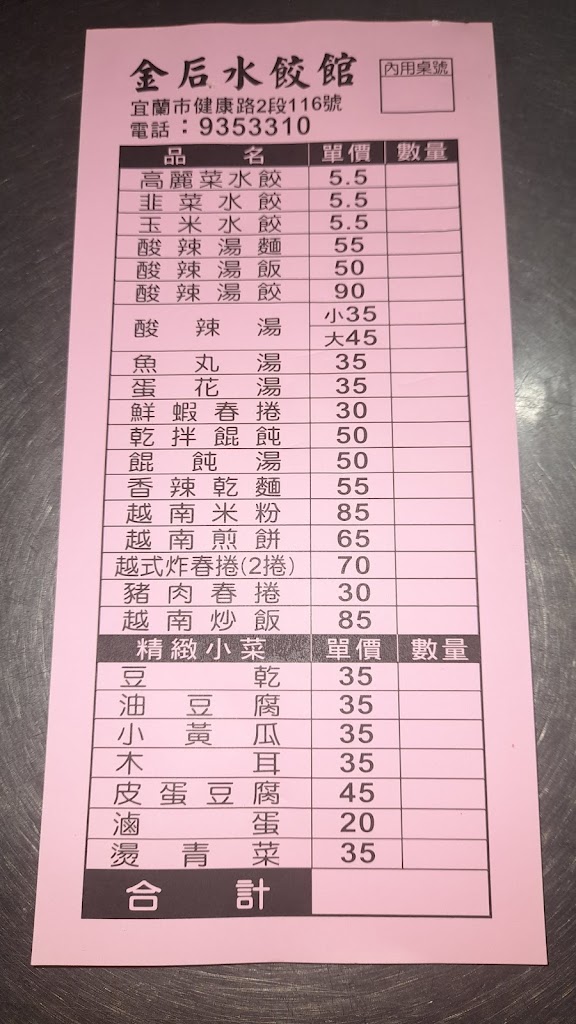 金后水餃館
內用桌號
宜蘭市健康路2段116號
電話：9353310
品名 單價 數量
高麗菜水餃 5.5
韭菜水餃 5.5
玉米水餃 5.5
酸辣湯麵 55
酸辣湯飯 50
酸辣湯餃 90
酸辣湯 小35
大45
魚丸湯 35
蛋花湯 35
鮮蝦春捲 30
乾拌餛飩 50
餛飩湯 50
香辣乾麵 55
越南米粉 85
越南煎餅 65
越式炸春捲(2捲) 70
豬肉春捲 30
越南炒飯 85
精緻小菜 單價 數量
豆乾 35
油豆腐 35
小黃瓜 35
木耳 35
皮蛋豆腐 45
滷蛋 20
燙青菜 35
合計